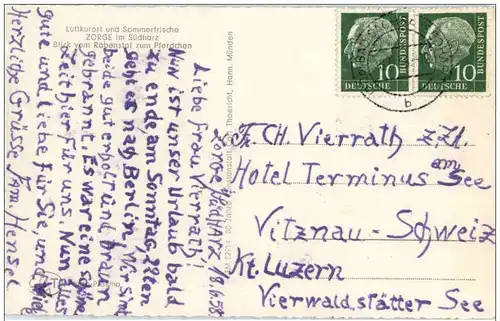 Luftkurort und Sommerfrische
ZORGE im Südharz
Blick vom Rabenstal zum Pferdchen
Zorge/Südharz, 18.6.58
Liebe Frau Vierrath!
Nun ist unser Urlaub bald
zu ende am Sonntag
gehtes nach Berlin. Wir sind
beide gut erholt und braun
gebrannt. Es war eine schöne
Zeit hier für uns. Nun alles
gute und liebe für Sie, und viele
Herzliche Grüsse, Fam. Hensel
Thoericht, Hann. Münden
10
DEUTSCHE BUNDESPOST
10
DEUTSCHE BUNDESPOST
b
Fr. CH. Vierrath z.Zt.
Hotel Terminus am See
Vitznau - Schweiz
Kt. Luzern
Vierwaldstätter See